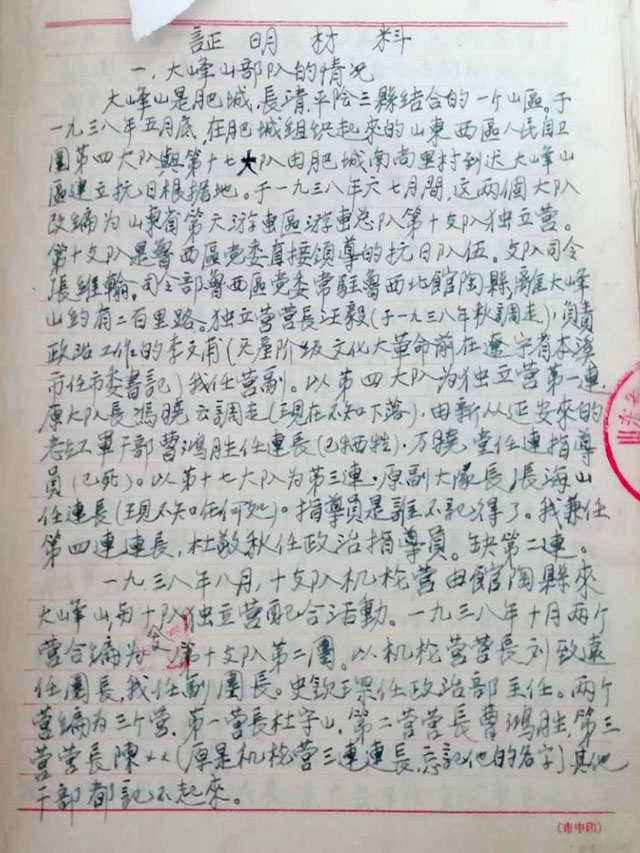 証明材料
一、大峰山部队的情况
大峰山是肥城、長清、平陰三縣结合的一个山區。于
一九三八年五月底,在肥城组织起來的山東西區人民自卫
團第四大队與第十七大队由肥城南尚里村到达大峰山
區建立抗日根据地。于一九三八年六七月間,这两個大队
改編为山東省第六游击區游击总队第十支队独立营。
第十支队是魯西區党委直接領導的抗日队伍。支队司令
張維翰。司令部魯西區党委常駐魯西北館陶縣,離大峰
山约有二百里路。独立营营長汪毅(于一九三八年秋調走),负責
政治工作的李文甫(无產阶级文化大革命前在遼宁省本溪
市任市委書記)我任营副。以第四大队为独立营第一連,
原大队長馮曉云調走(現在不知下落),由新从延安來的
老红軍干部曹鴻胜任連長(已牺牲),万曉堂任連指導
員(已死)。以第十七大队为第三連,原副大隊長張海山
任連長(現不知任何如)。指導員是誰不記得了。我兼任
第四連連長,杜敬秋任政治指導員。缺第二連。
一九三八年八月,十支队机枪营由館陶縣來
大峰山與十队独立营配合活動。一九三八年十月两个
营合編为第十支队第二團。以机枪营营長刘致遠
任團長,我任副團長。史欽琛任政治部主任。两个
营編为三个营,第一营長杜守山,第二营营長曹鴻胜,第三
营营長陳××(原是机枪营三連連長,忘記他的名字)其他
干部都記不起來。
(市中印)